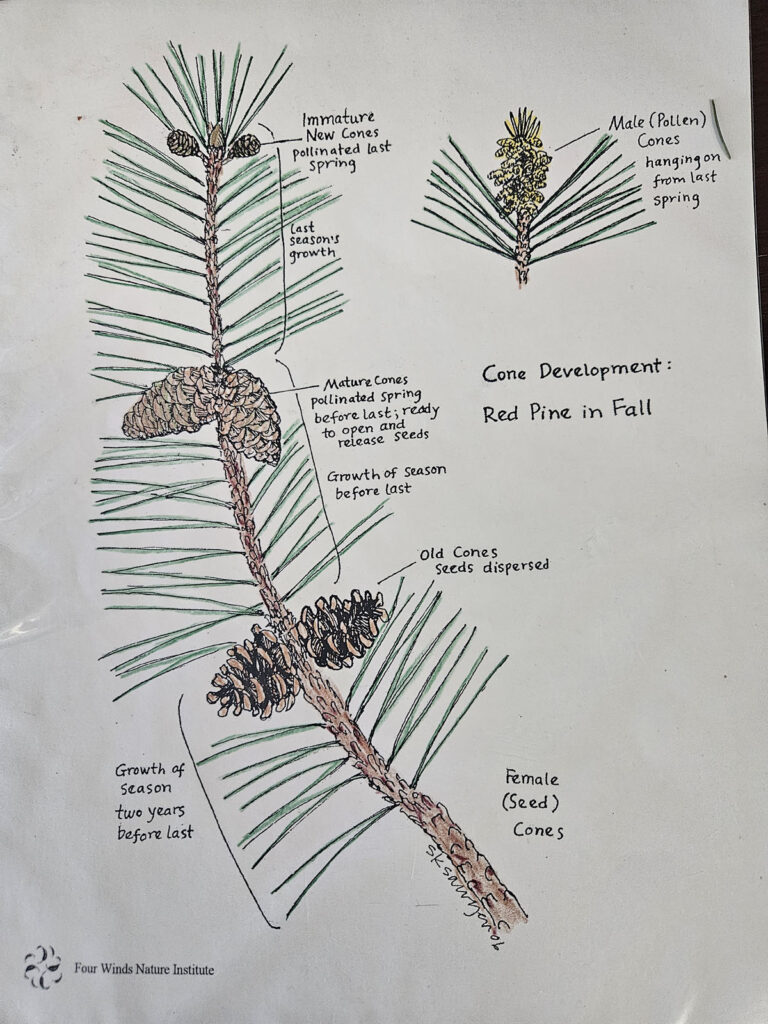 Immature
New Cones
pollinated last
spring
Male (Pollen)
Cones
hanging on
from last
spring
last
season's
growth
Cone Development:
Red Pine in Fall
Mature Cones
pollinated spring
before last; ready
to open and
release seeds
Growth of season
before last
Old Cones
Seeds dispersed
Growth of
season
two years
before last
Female
(Seed)
Cones
Four Winds Nature Institute